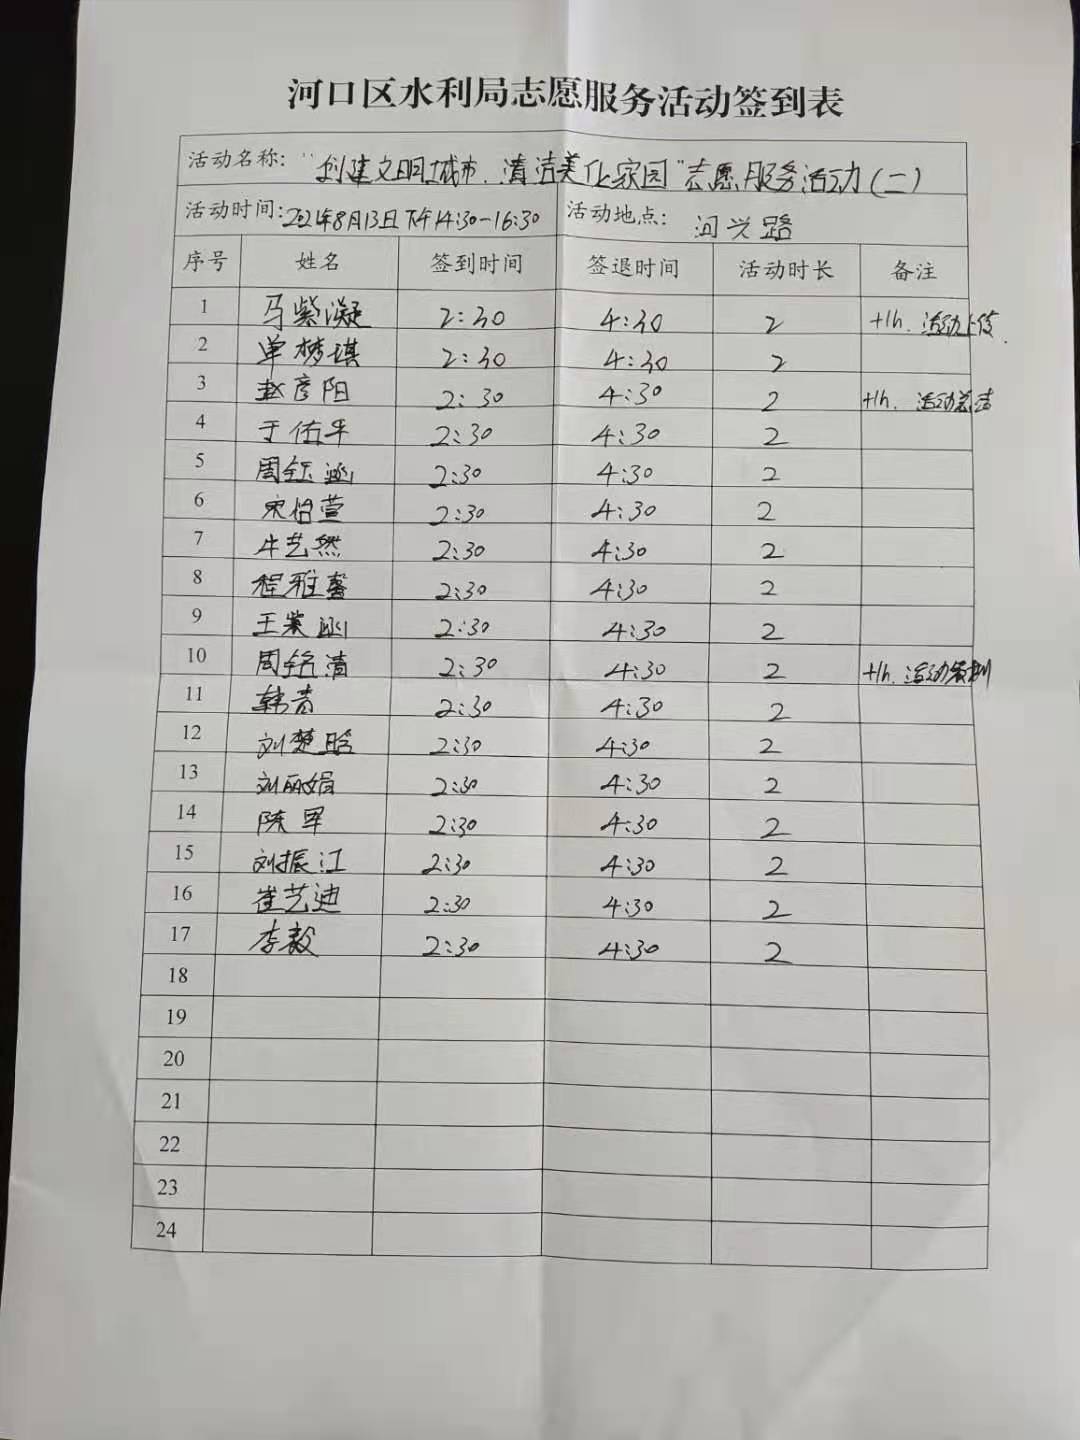 河口区水利局志愿服务活动签到表
活动名称: "创建文明城市、清洁美化家园"志愿服务活动(二)
活动时间: 2021年8月13日下午14:30-16:30 活动地点: 河兴路
序号 姓名 签到时间 签退时间 活动时长 备注
1 马紫凝 2:30 4:30 2 +1h. 活动上传.
2 单梦琪 2:30 4:30 2
3 赵彦阳 2:30 4:30 2 +1h. 活动总结
4 于佑平 2:30 4:30 2
5 周钰涵 2:30 4:30 2
6 宋怡萱 2:30 4:30 2
7 牛艺然 2:30 4:30 2
8 程雅馨 2:30 4:30 2
9 王紫涵 2:30 4:30 2
10 周铭清 2:30 4:30 2 +1h. 活动策划
11 韩青 2:30 4:30 2
12 刘楚晗 2:30 4:30 2
13 刘丽娟 2:30 4:30 2
14 陈军 2:30 4:30 2
15 刘振江 2:30 4:30 2
16 崔艺迪 2:30 4:30 2
17 李毅 2:30 4:30 2
18
19
20
21
22
23
24